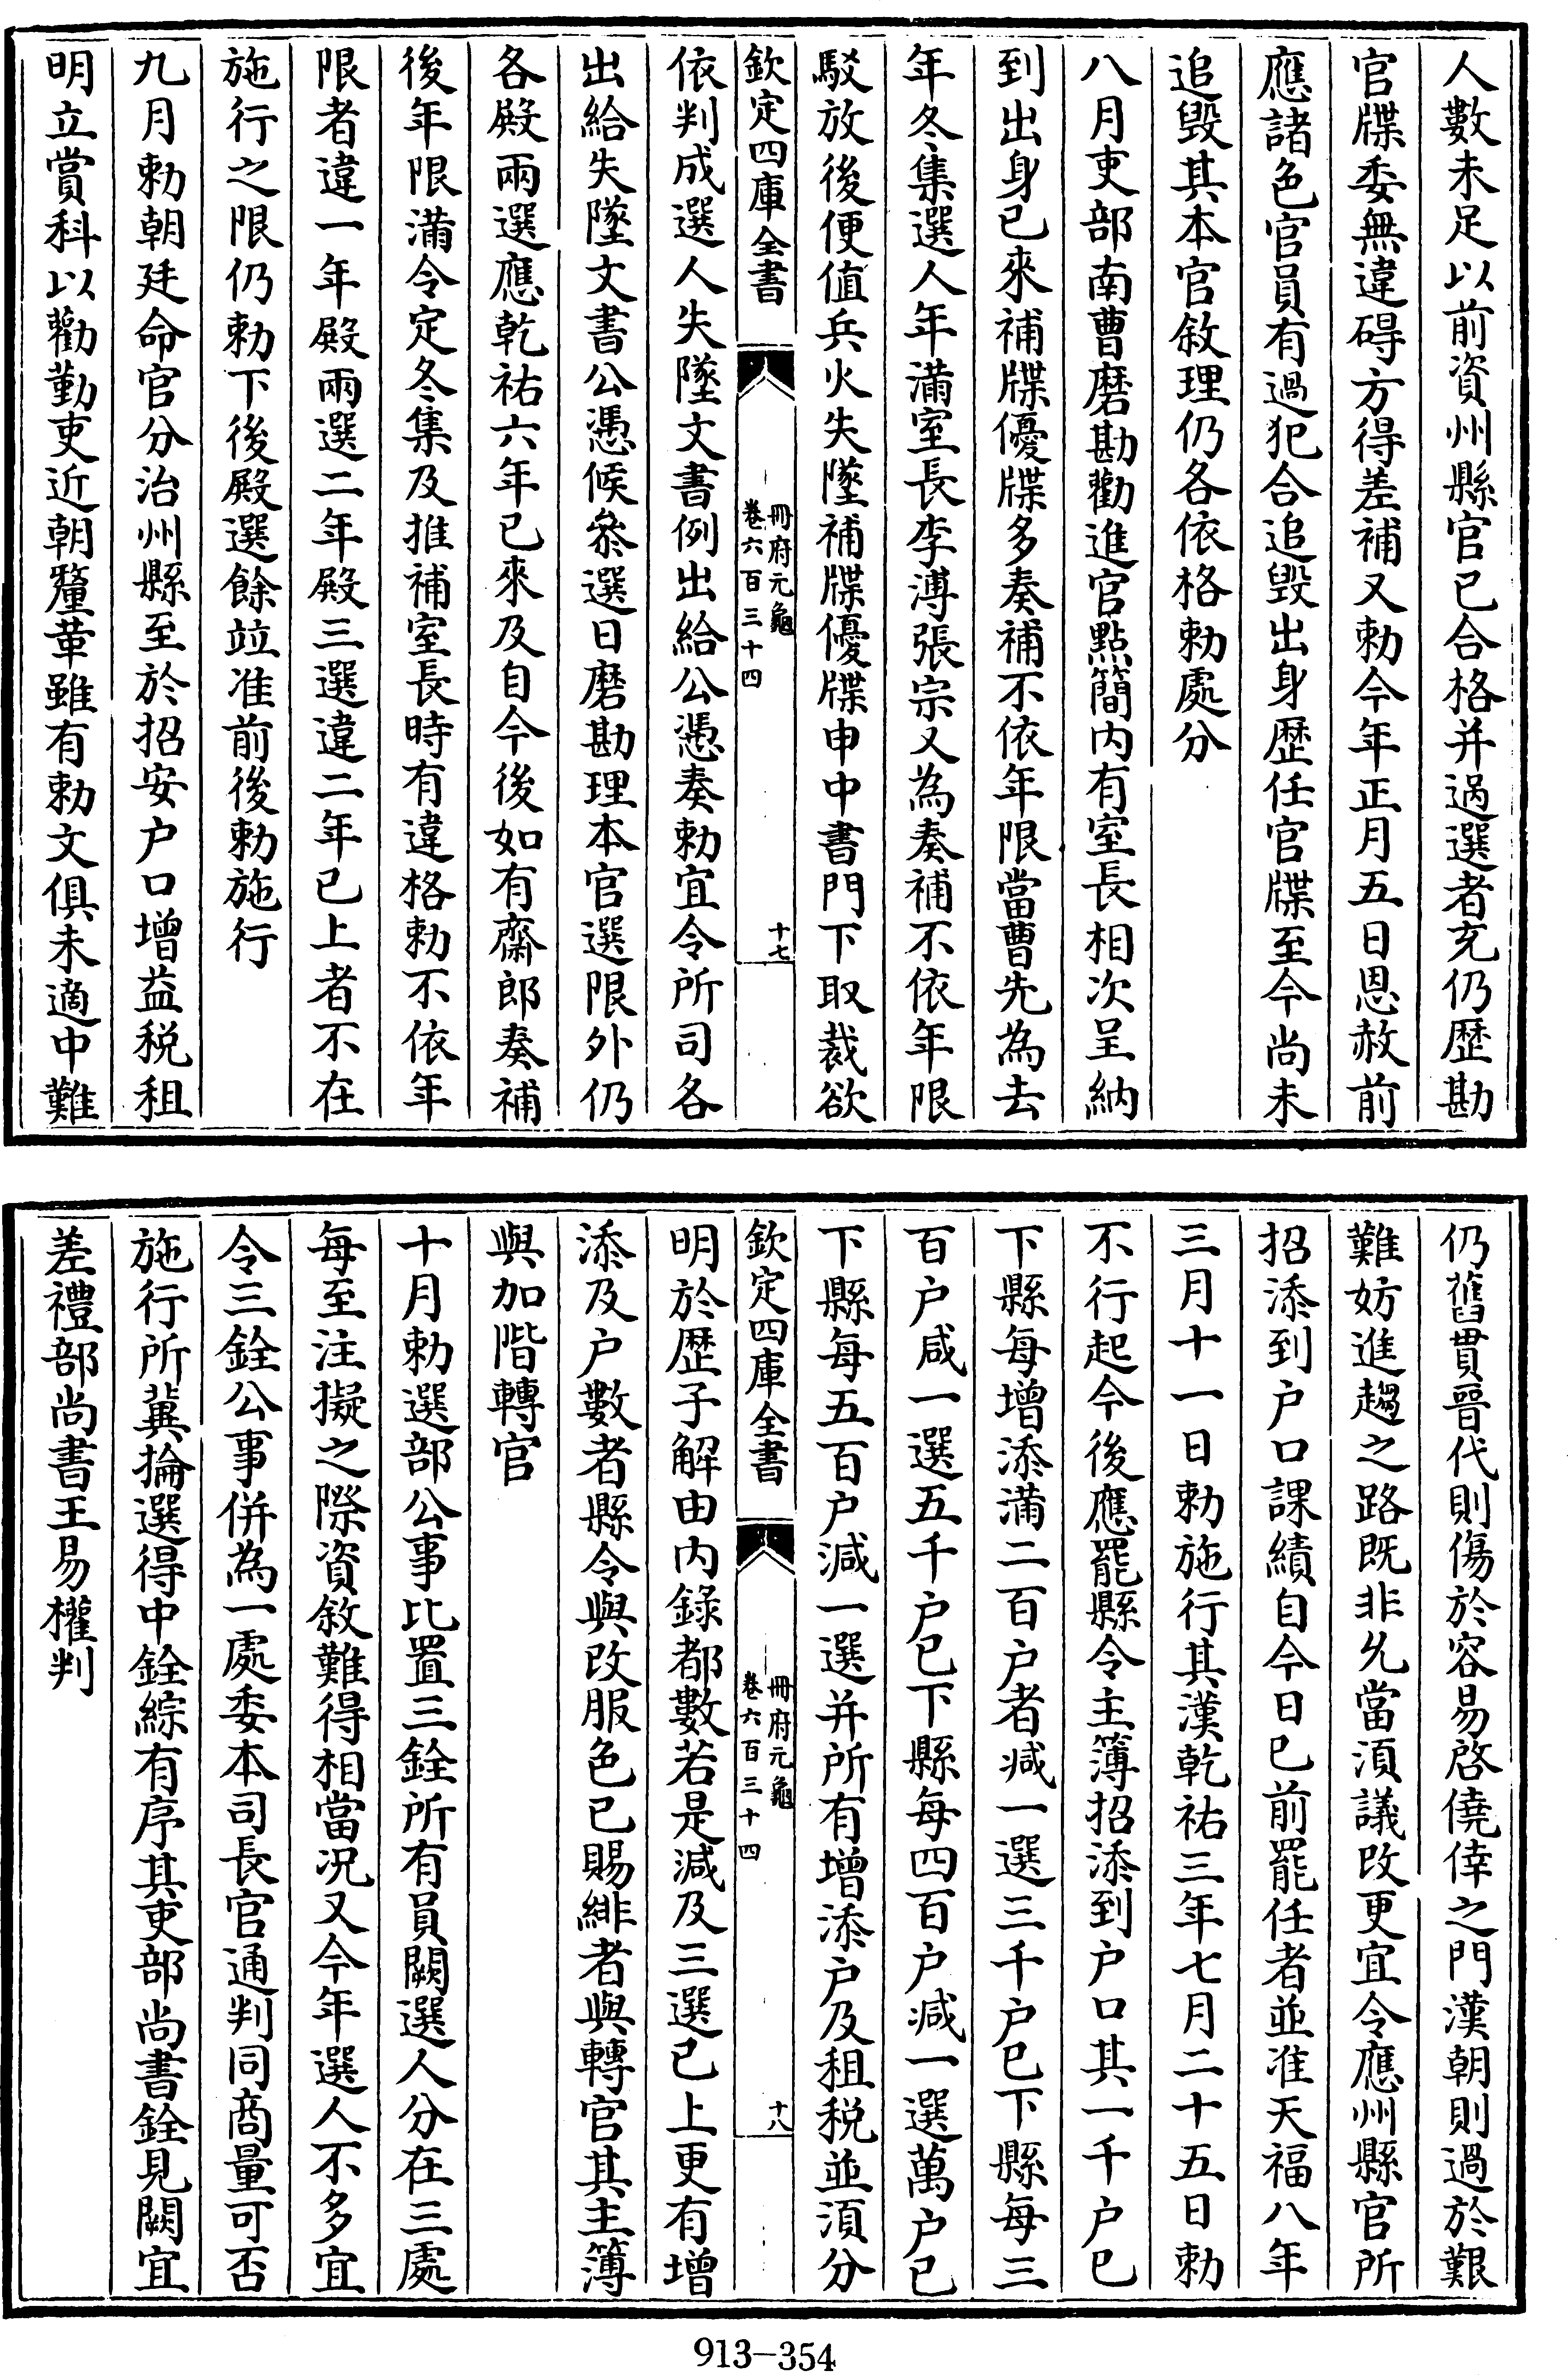 人數未足以前資州縣官已合格并過選者充仍歴勘
官牒委無違碍方得差補又勅今年正月五日恩赦前
應諸色官員有過犯合追毀出身歴任官牒至今尚未
追毀其本官敘理仍各依格勅處分
八月吏部南曹磨勘勸進官點簡内有室長相次呈納
到出身已來補牒優牒多奏補不依年限當曹先為去
年冬集選人年滿室長李溥張宗乂為奏補不依年限
駁放後便值兵火失墜補牒優牒申中書門下取裁欲
欽定四庫全書
冊府元龜
卷六百三十四
十七
依判成選人失墜文書例出給公憑奏勅宜令所司各
出給失墜文書公憑候叅選日磨勘理本官選限外仍
各殿兩選應乾祐六年已來及自今後如有齋郎奏補
後年限滿令定冬集及推補室長時有違格勅不依年
限者違一年殿兩選二年殿三選違二年已上者不在
施行之限仍勅下後殿選餘竝准前後勅施行
九月勅朝廷命官分治州縣至於招安户口增益税租
明立賞科以勸勤吏近朝釐革雖有勅文俱未適中難
仍舊貫晉代則傷於容易啓僥倖之門漢朝則過於艱
難妨進趨之路既非允當湏議改更宜令應州縣官所
招添到户口課績自今日已前罷任者並准天福八年
三月十一日勅施行其漢乾祐三年七月二十五日勅
不行起今後應罷縣令主簿招添到户口其一千户已
下縣每增添滿二百户者减一選三千户已下縣每三
百户减一選五千户已下縣每四百户减一選萬户已
下縣每五百户減一選并所有增添户及租税並湏分
欽定四庫全書
冊府元龜
卷六百三十四
十八
明於歴子解由内錄都數若是減及三選已上更有增
添及户數者縣令與改服色已賜緋者與轉官其主簿
與加階轉官
十月勅選部公事比置三銓所有員闕選人分在三處
每至注擬之際資敘難得相當况又今年選人不多宜
令三銓公事併為一處委本司長官通判同商量可否
施行所冀掄選得中銓綜有序其吏部尚書銓見闕宜
差禮部尚書王易權判
913-354